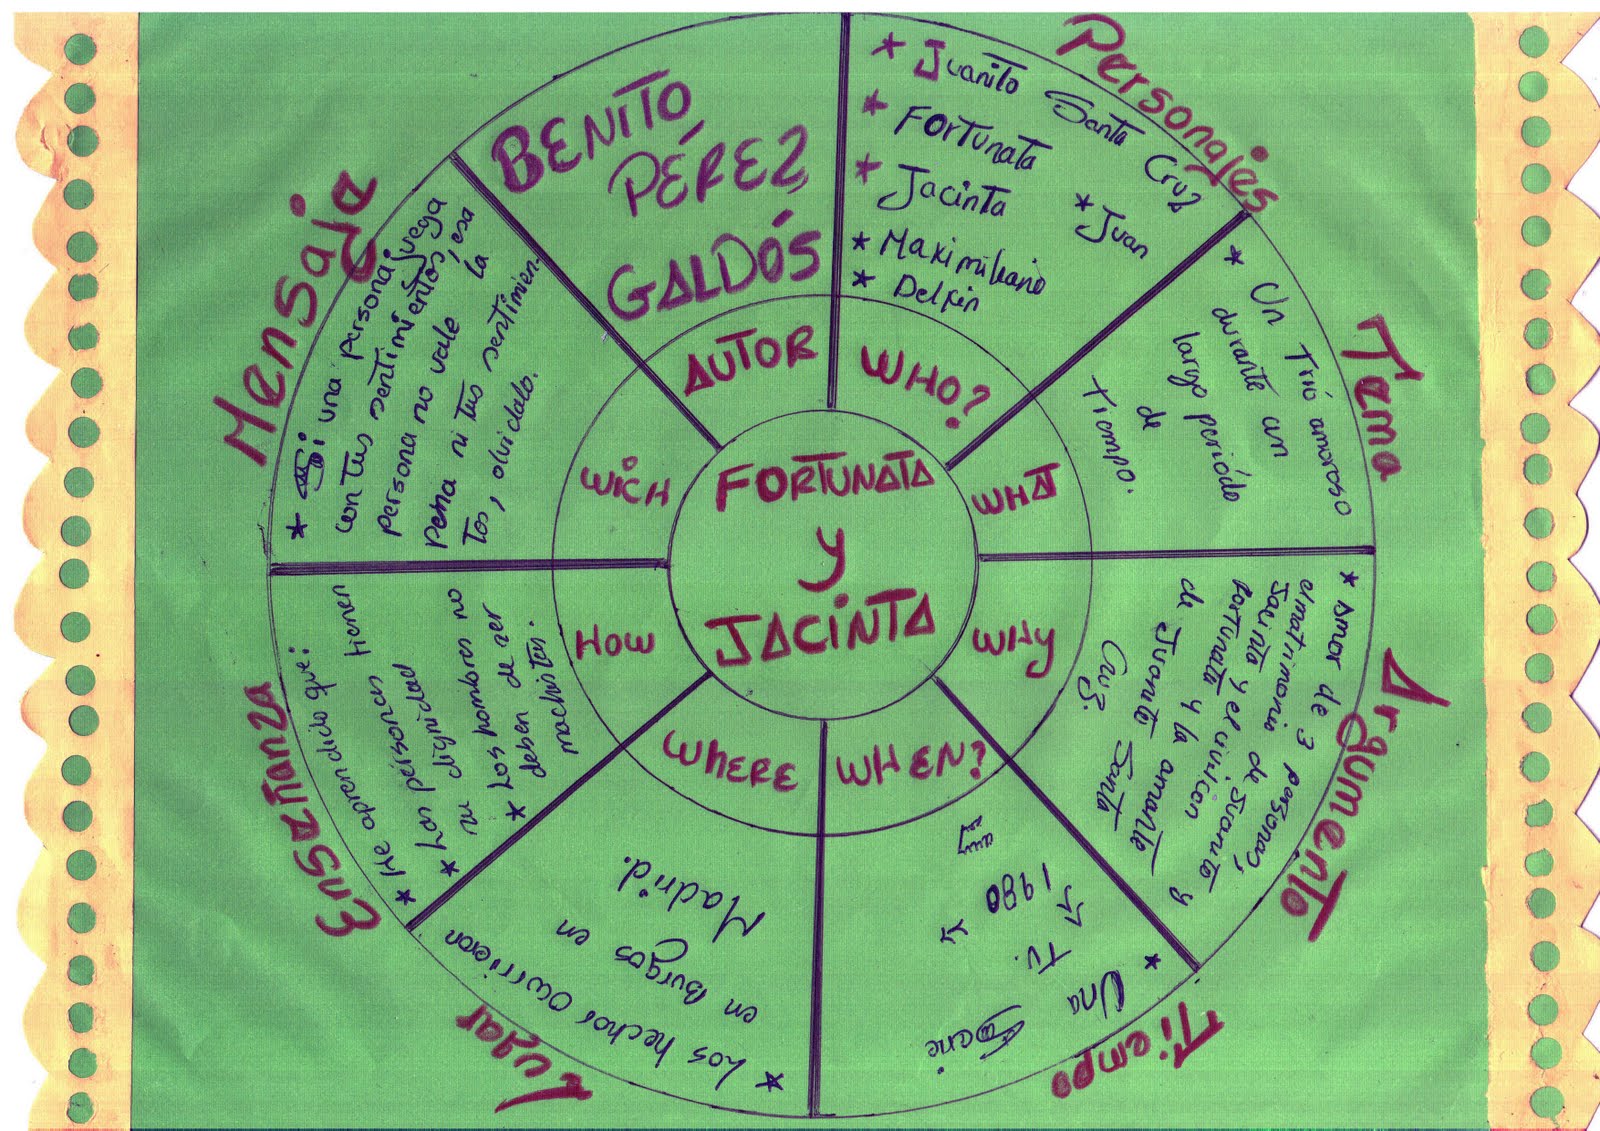 FORTUNATA
Y
JACINTA
AUTOR
BENITO
PÉREZ
GALDÓS
WHO?
Personajes
* Juanito Santa Cruz
* Fortunata
* Jacinta
* Juan
* Maximiliano
* Delfin
WHAT
Tema
* Un Trió amoroso
durante un
largo periódo
de
Tiempo.
WHY
Argumento
* Amor de 3 personas,
el matrimonio de
Jacinta y de Juanito y
Fortunata y
la amante
de Juanito Santa
Cruz.
WHEN?
Tiempo
* Una Serie
TV.
1980
WHERE
Lugar
* Los hechos ocurrieron
en Burgos en
Madrid.
HOW
Enseñanza
* He aprendido que:
* Las personas tienen
su dignidad
* Los hombres no
deben de ser
machistas.
WICH
Mensaje
* Si una persona juega
con tus sentimientos, esa
persona no vale la
pena ni tus sentimien-
tos, olvidalo.